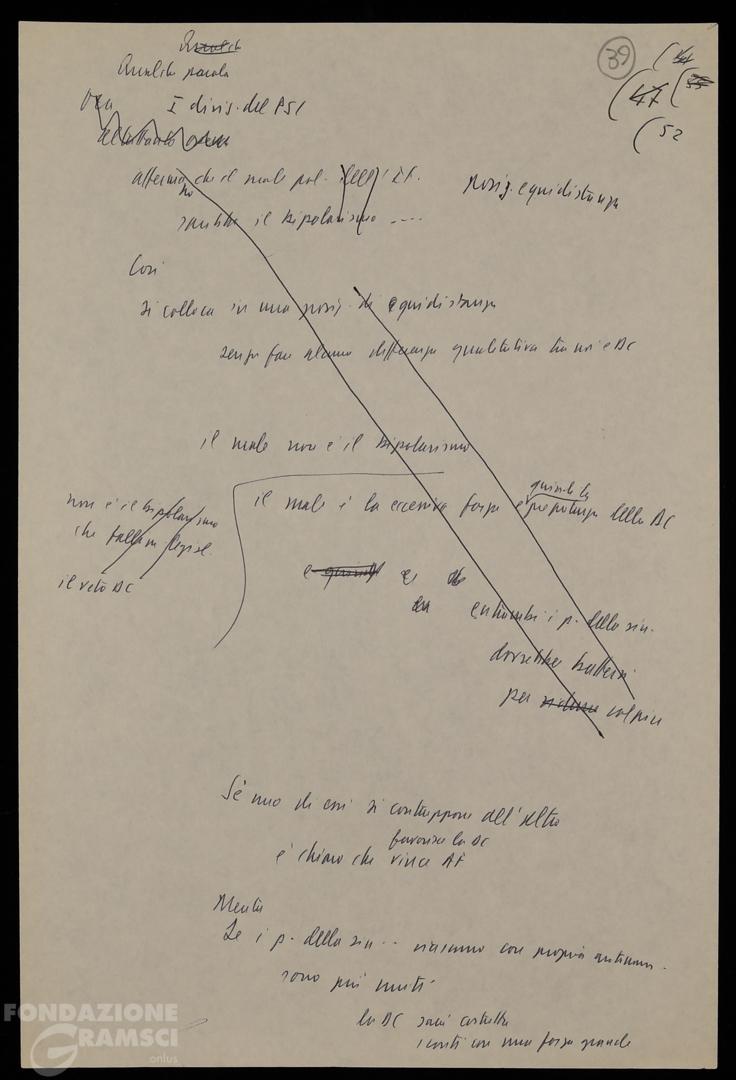 Qualche parola
39
44
47
52
Ora I divis. del PSI
che il male pol. dell'It.
sarebbe il bipolarismo ....
posiz. equidistanza
Così
si colloca in una posiz. di equidistanza
senza fare alcuna differenza qualitativa tra noi e DC
il male non è il bipolarismo
il male è la eccessiva forza e quindi la prepotenza della DC
non è il bipolarismo
che
il veto DC
e
entrambi i p. della sin.
dovrebbe battersi
per colpire
Se uno di essi si contrappone all'altro
favorisce la DC
è chiaro che vince AF
Mentre
Se i p. della sin.. ciascuno con propria autonom.
sono più uniti
la DC sarà costretta
i conti con una forza grande
FONDAZIONE
GRAMSCI
onlus